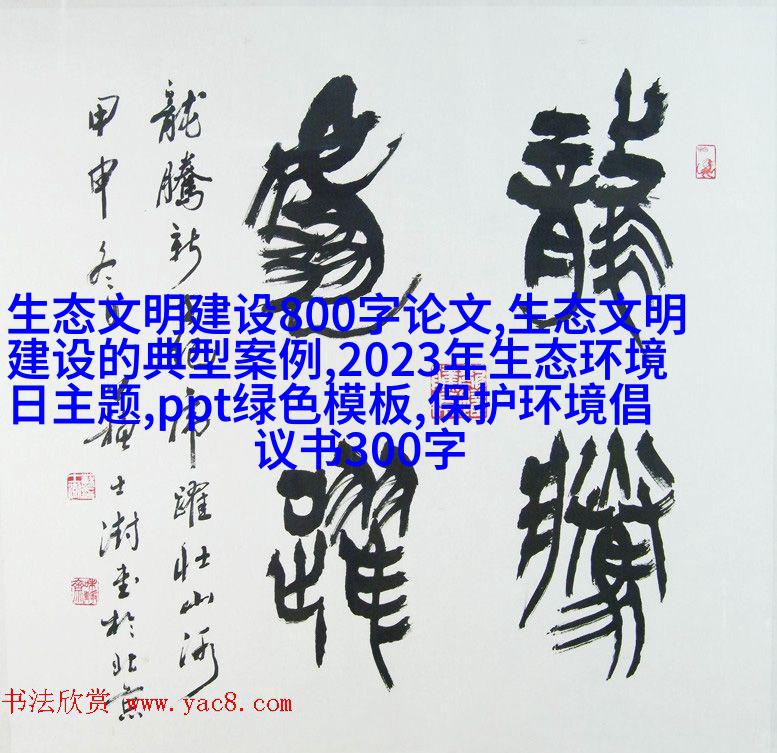 龍騰
虎躍
龍騰新 虎躍壯山河
甲申冬 蘇士澍書於北京
生态文明建设800字论文,生态文明
建设的典型案例,2023年生态环境
日主题,ppt绿色模板,保护环境倡
议书300字
书法欣赏 www.yac8.com